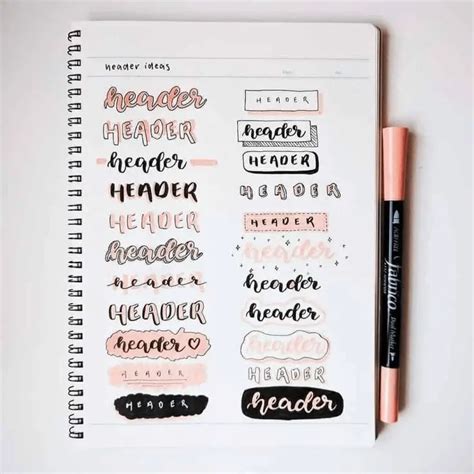 header ideas
header
HEADER
header
HEADER
HEADER
header
header
HEADER
header ♡
HEADER
HEADER
HEADER
header
HEADER
HEADER
HEADER
header
header
header
header
HEADER
header
fabrico
Dual Marker